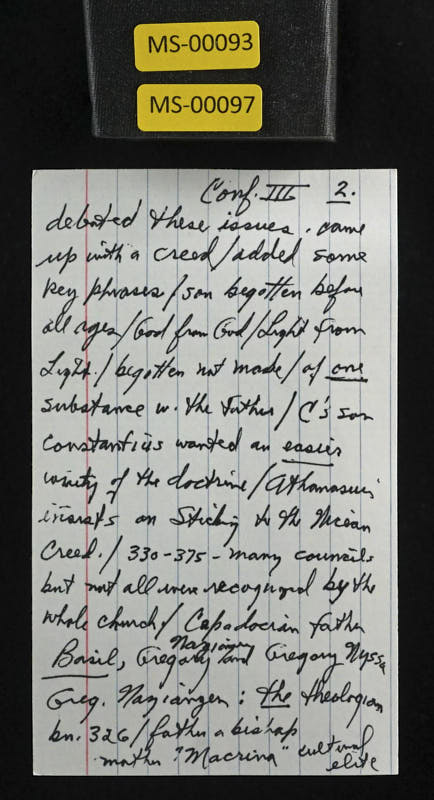 MS-00093
MS-00097
Conf. III 2.
debated these issues. came
up with a creed/added some
key phrases/son begotten before
all ages/God from God/Light from
Light./begotten not made/of one
substance w. the Father/C's son
Constantius wanted an easier
of the doctrine/Athanasius
insists on Sticking to the Nicean
Creed./330-375-many councils
but not all were recognized by the
whole church/Capadocian father
Basil, Gregory Nazianzen and Gregory Nyssa
Greg. Nazianzen: the theologian
bn. 326/father a bishop
mother "Macrina" cultural
elite